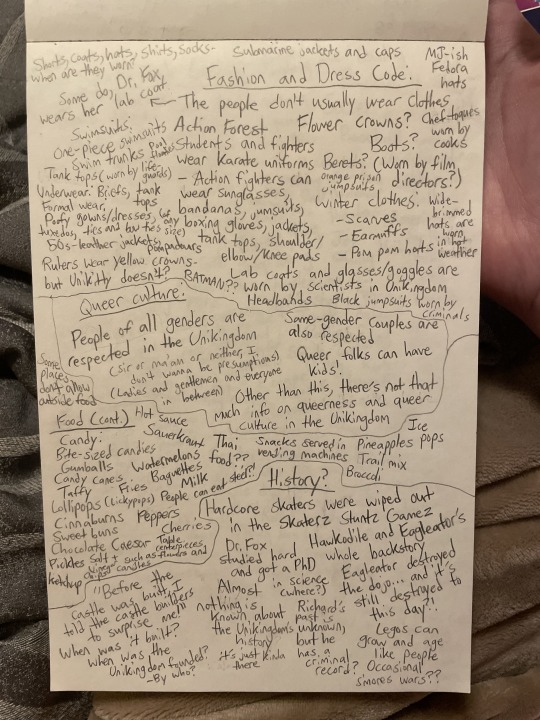 Shorts, coats, hats, shirts, socks-
when are they worn?
Submarine jackets and caps
MJ-ish
Fedora
hats
Fashion and Dress Code:
Some do, Dr. Fox
wears her lab coat
The people don't usually wear clothes
Swimsuits:
One-piece swimsuits
Swim trunks
Tank tops (worn by life-
guards)
Underwear: Briefs, tank
tops
Formal wear,
Poofy gowns/dresses, (for
tuxedos, ties and bow ties any
size)
50s-leather jackets,
Pompadours
Rulers wear yellow crowns-
but Unikitty doesn't?
BATMAN??
Action Forest
Students and fighters
wear Karate uniforms
- Action fighters can
wear sunglasses,
bandanas, jumpsuits,
boxing gloves, jackets,
tank tops, shoulder/
elbow/knee pads
Flower crowns?
Chef toques
worn by
cooks
Boots?
Berets? (Worn by film
directors?)
orange prison
jumpsuits
Winter clothes:
- Scarves
- Earmuffs
- Pom pom hats
Wide-
brimmed
hats are
worn
in hot
weather
Lab coats and glasses/goggles are
worn by scientists in Unikingdom
Headbands
Black jumpsuits worn by
criminals
Queer culture:
People of all genders are
respected in the Unikingdom
(sir or ma'am or neither, I
don't wanna be presumptious)
(Ladies and gentlemen and everyone
in between)
Same-gender couples are
also respected
Queer folks can have
kids!
Other than this, there's not that
much info on queerness and queer
culture in the Unikingdom
Some
places
don't allow
outside food
Food (cont.)
Hot sauce
Sauerkraut
Candy:
Bite-sized candies
Gumballs
Candy canes
Taffy
Lollipops (Lickypops)
Cinnaburns
Sweet buns
Chocolate
Pickles
Ketchup
Watermelons
Fries
Baguettes
Milk
Thai
food??
People can eat steel?!
Peppers
Cherries
Caesar
Salt
Table
centerpieces,
such as flowers and
Snacks served in
vending machines
Pineapples
Ice
pops
Trail mix
Broccoli
History?
Hardcore skaters were wiped out
in the Skaterz Stuntz Gamez
Dr. Fox
studied hard
and got a PhD
in science
(where?)
Hawkodile and Eagleator's
whole backstory
Eagleator destroyed
the dojo... and it's
still destroyed to
this day?!!
"Before the
castle was built, I
told the castle builders
to surprise me!"
When was it built?
when was the
Unikingdom founded?
-By who?
Almost
nothing is
known about
the Unikingdom's
history
it's just kinda
there
Richard's
past is
unknown,
but he
has a
criminal
record?
Legos can
grow and age
like people
Occasional
s'mores wars??